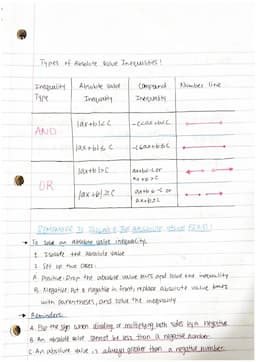 Types of Absolute Value Inequalities!
Inequality Type Absolute Value Inequality Compound Inequality Number line
AND
|ax+b|<C -C<ax+b<C
|ax+b|≤C -C≤ax+b≤C
OR
|ax+b|>C ax+b<-C or ax+b>C
|ax+b|≥C ax+b≤-C or ax+b≥C
REMEMBER TO ISOLATE THE ABSOLUTE VALUE FIRST!
→ To solve an absolute value inequality:
1. Isolate the absolute value
2. Set up two cases:
A. Positive: Drop the absolute value bars and solve the inequality
B. Negative: Put a negative in front, replace absolute value bars
with parentheses, and solve the inequality
→ Reminders:
A. Flip the sign when dividing or multiplying both sides by a negative
B. An absolute value cannot be less than a negative number
C. An absolute value is always greater than a negative number